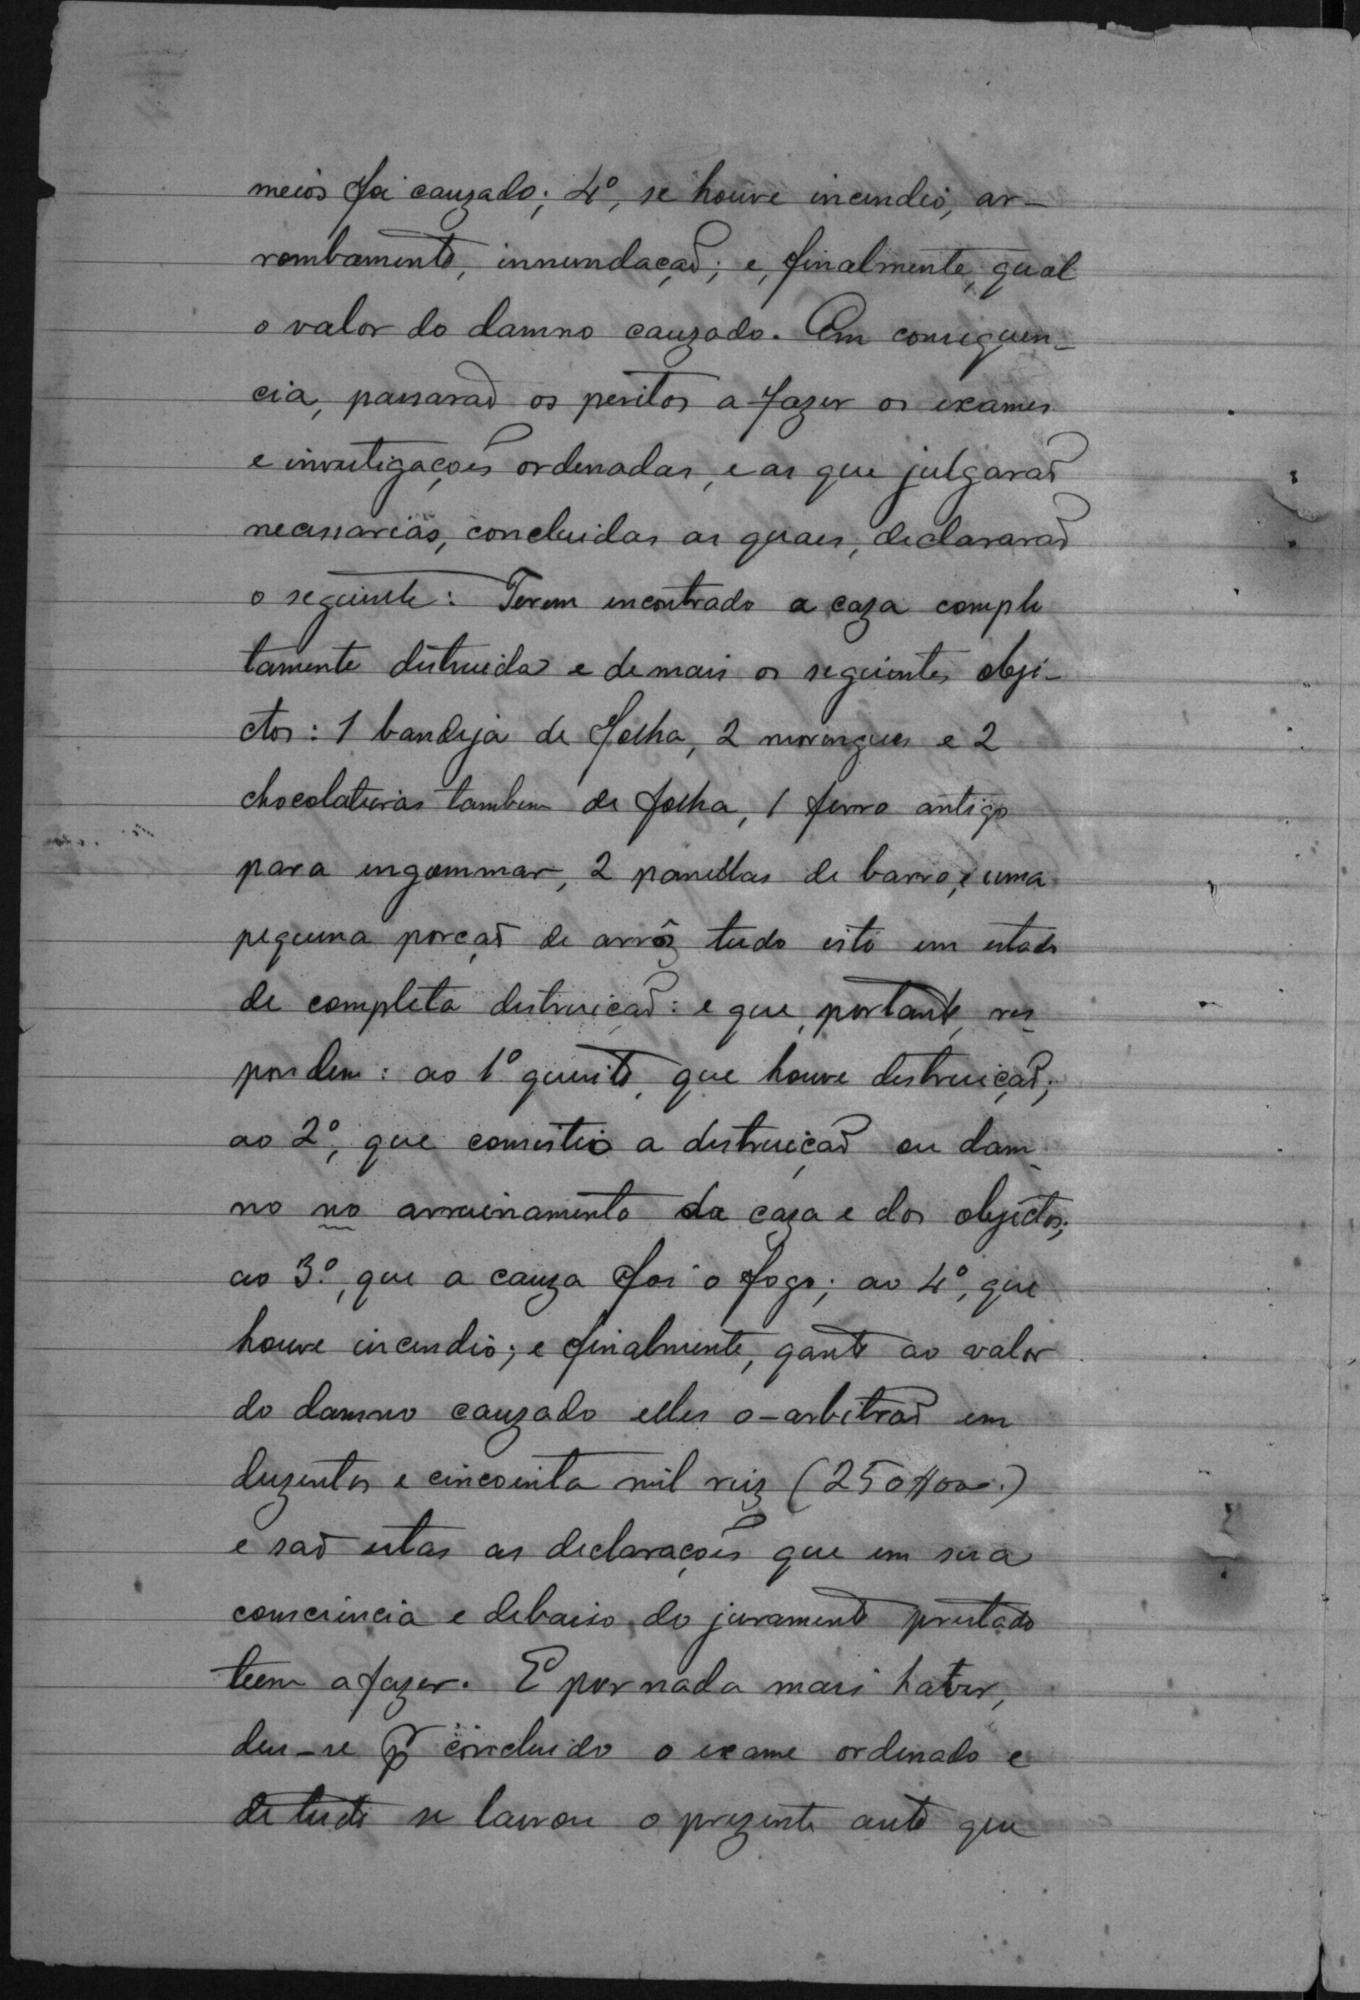 meios foi cauzado; 4º, se houve incendio, ar-
rombamento, innundação; e, finalmente, qual
o valor do damno cauzado. Em consequen-
cia, passarão os peritos a fazer os exames
e investigações ordenadas, e as que julgarão
necessarias, concluidas as quaes, declararão
o seguinte: Terem encontrado a caza comple
tamente distruida e de mais os seguintes obje-
ctos: 1 bandeja de folha, 2 moringues e 2
chocolateiras tambem de folha, 1 ferro antigo
para engommar, 2 panellas de barro, e uma
pequena porção de arrôz tudo isto em estado
de completa destruição: e que, portanto, res-
pondem: ao 1º quesito, que houve destruição;
ao 2º, que consistio a destruição ou dam-
no no arruinamento da caza e dos objectos;
ao 3º, que a cauza foi o fogo; ao 4º, que
houve incendio; e finalmente, qanto ao valor
do damno cauzado elles o-arbitrão em
duzentos e cincoenta mil reiz (250#000.)
e são estas as declarações que em sua
consciencia e debaixo do juramento prestado
teem a fazer. E por nada mais haver,
deu-se p concluido o exame ordenado e
de tudo se lavrou o prezente auto que